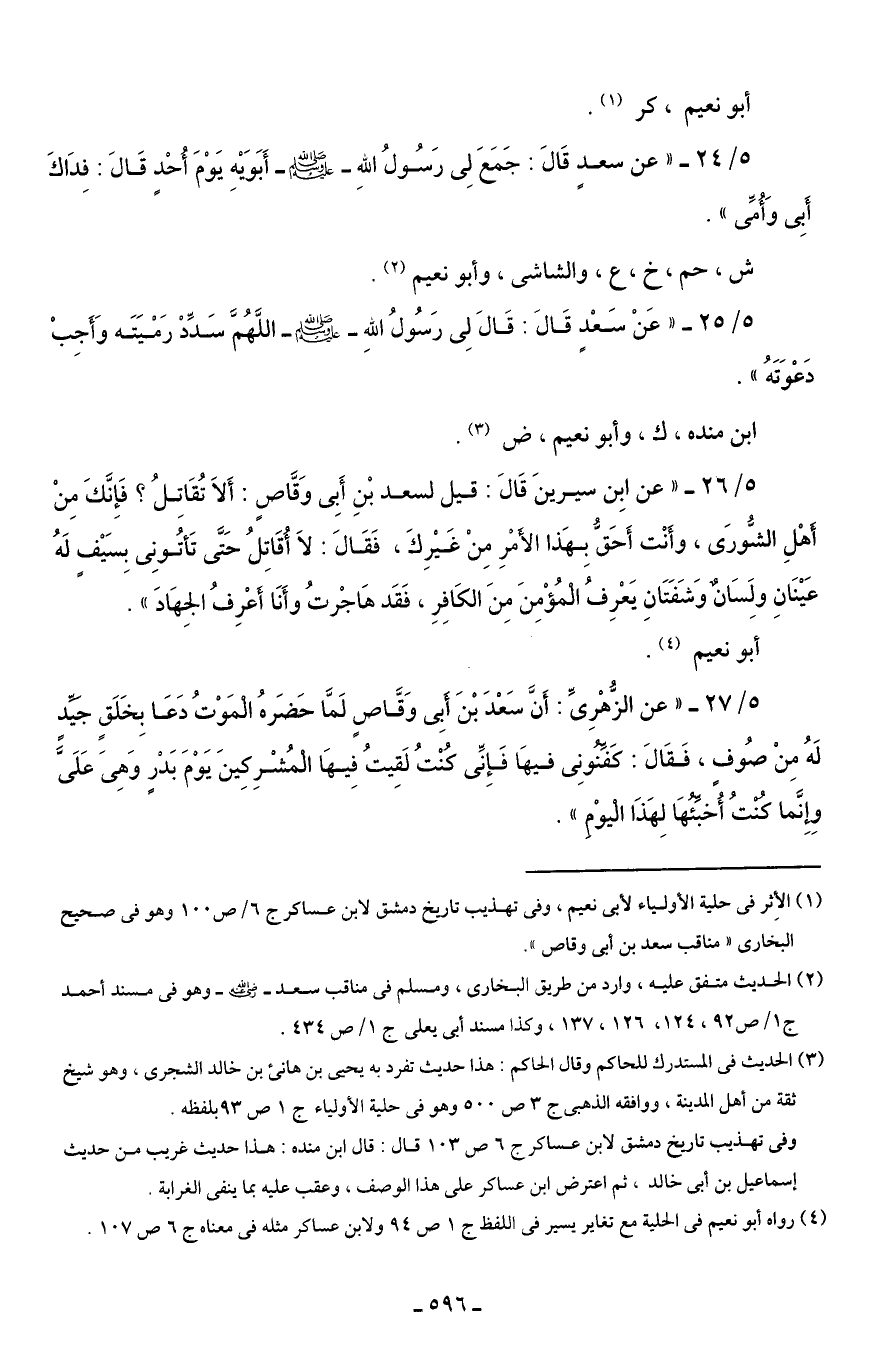 أبو نعيم ، كر (١) .
٥/ ٢٤ ـ « عن سعـدٍ قَالَ : جَمَعَ لِى رَسُـولُ اللهِ ـ ﷺ ـ أَبَوَيْهِ يَوْمَ أُحُدٍ قَـالَ : فِدَاكَ
أَبِى وَأُمِّى » .
ش ، حم ، خ ، ع ، والشاشى ، وأبو نعيم (٢) .
٥/ ٢٥ ـ « عَنْ سَـعْدٍ قَـالَ : قَـالَ لِى رَسُولُ اللهِ ـ ﷺ ـ اللَّهُمَّ سَـدِّدْ رَمْـيَتَـه وَأَجِبْ
دَعْوَتَهُ » .
ابن منده ، ك ، وأبو نعيم ، ض (٣) .
٥/ ٢٦ ـ « عن ابن سيـرينَ قَالَ : قـيل لسعـد بْنِ أَبِى وَقَّاصٍ : أَلاَ تُقَاتِـلُ ؟ فَإِنَّكَ مِنْ
أَهْلِ الشُّورَى ، وَأَنْت أَحَقُّ بِـهَذَا الأَمْرِ مِنْ غَـيْرِكَ ، فَقَـالَ : لاَ أُقَاتِلُ حَتَّى تَأتُـونِى بِسَيْفٍ لَهُ
عَيْنَانِ ولِسَانٌ وَشَفَتَانِ يَعْرِفُ الْمُؤْمِنَ مِنَ الكَافِرِ ، فَقَد هَاجْرتُ وأَنَا أَعْرِفُ الجِهَادَ » .
أبو نعيم (٤) .
٥/ ٢٧ ـ « عن الزُّهْرِىِّ : أَنَّ سَعْدَ بْنَ أَبِى وَقَّـاصٍ لَمَّا حَضَرَهُ الْمَوْتُ دَعَـا بِخَلَقٍ جَيِّدٍ
لَهُ مِنْ صُوفٍ ، فَـقَالَ : كَفِّنُونِى فـيهَا فَـإِنِّى كُنْتُ لَقِيتُ فِيـهَا الْمُشْـرِكِينَ يَوْمَ بَدْرٍ وَهِىَ عَلَىَّ
وإِنَّما كُنْتُ أُخَبِّئُهَا لِهَذَا الْيوْمِ » .
(١) الأثر فى حلية الأولـياء لأبى نعيم ، وفى تهـذيب تاريخ دمشق لابن عـساكر ج ٦/ ص١٠٠ وهو فى صـحيح
البخارى « مناقب سعد بن أبى وقاص ».
(٢) الحـديث متـفق عليـه ، وارد من طريق البـخارى ، ومـسلم فى مناقب سـعـد ـ رضي الله عنه ـ وهو فى مـسند أحمـد
ج١/ ص٩٢ ، ١٢٤، ١٢٦ ، ١٣٧ ، وكذا مسند أبى يعلى ج ١/ ص ٤٣٤ .
(٣) الحديث فى المستدرك للحاكم وقال الحاكم : هذا حديث تفرد به يحيى بن هانئ بن خالد الشجرى ، وهو شيخ
ثقة من أهل المدينة ، ووافقه الذهبى ج ٣ ص ٥٠٠ وهو فى حلية الأولياء ج ١ ص ٩٣بلفظه .
وفى تهـذيب تاريخ دمشق لابن عـساكر ج ٦ ص ١٠٣ قـال : قال ابن منده : هـذا حديث غريب مـن حديث
إسماعيل بن أبى خالد ، ثم اعترض ابن عساكر على هذا الوصف ، وعقب عليه بما ينفى الغرابة .
(٤) رواه أبو نعيم فى الحلية مع تغاير يسير فى اللفظ ج ١ ص ٩٤ ولابن عساكر مثله فى معناه ج ٦ ص ١٠٧ .
ـ ٥٩٦ ـ